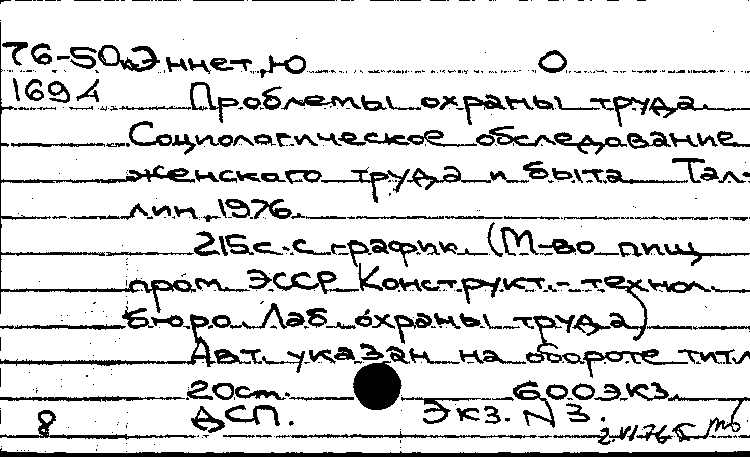 76-50к Эннет, Ю О
1694 Проблемы охраны труда.
Социологическое обследование
женского труда и быта. Тал-
лин, 1976.
215с. с график. (М-во пищ
пром. ЭССР Конструкт.-технол.
бюро. Лаб. охраны труда)
Авт. указан на обороте титл
20cm. 600экз.
8 ДСП. Экз. N 3.
2 VI 76